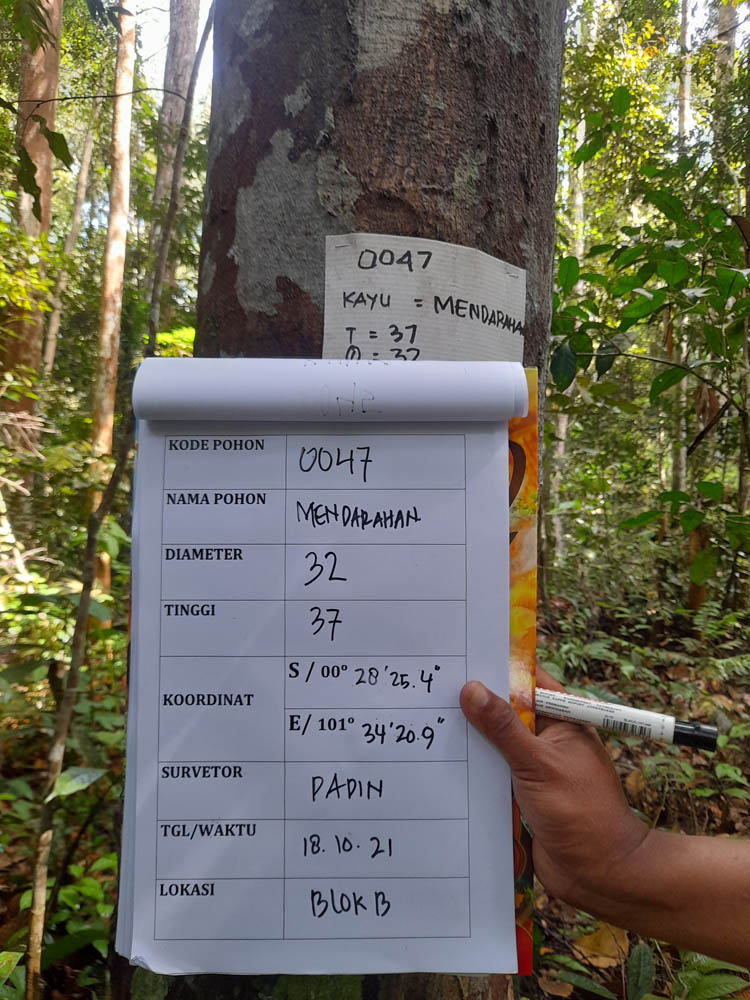 0047
KAYU = MENDARAHAN
T = 37
= 32
KODE POHON 0047
NAMA POHON MENDARAHAN
DIAMETER 32
TINGGI 37
KOORDINAT S / 00° 28'25.4"
E/ 101° 34'20.9"
SURVETOR DADIN
TGL/WAKTU 18.10.21
LOKASI BLOK B